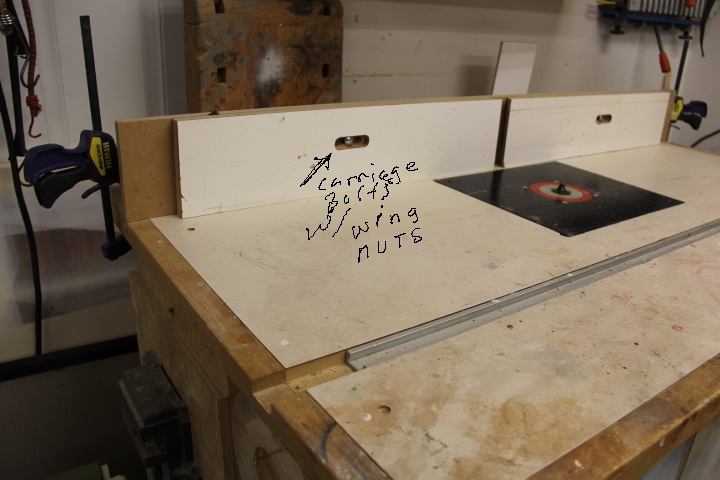 carriage
Bolts
w/ wing
nuts
IRWIN